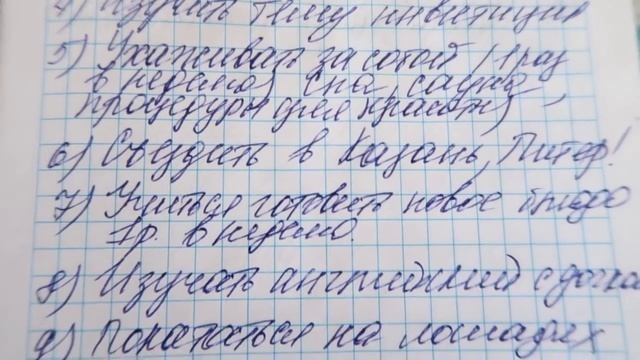 4) Изучить тему инвестиций
5) Ухаживать за собой (1 раз
в неделю) спа, сауна,
процедуры для красоты)
6) Съездить в Казань, Питер!
7) Учиться готовить новое блюдо
1р. в неделю.
8) Изучать английский с дочка
9) Покататься на лошадях